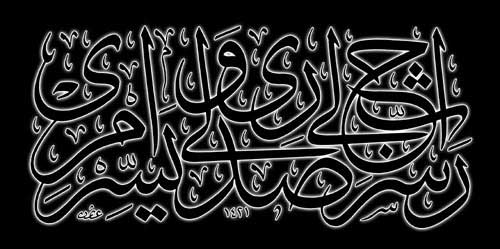 رب اشرح لي صدري ويسر لي أمري
١٤٢١